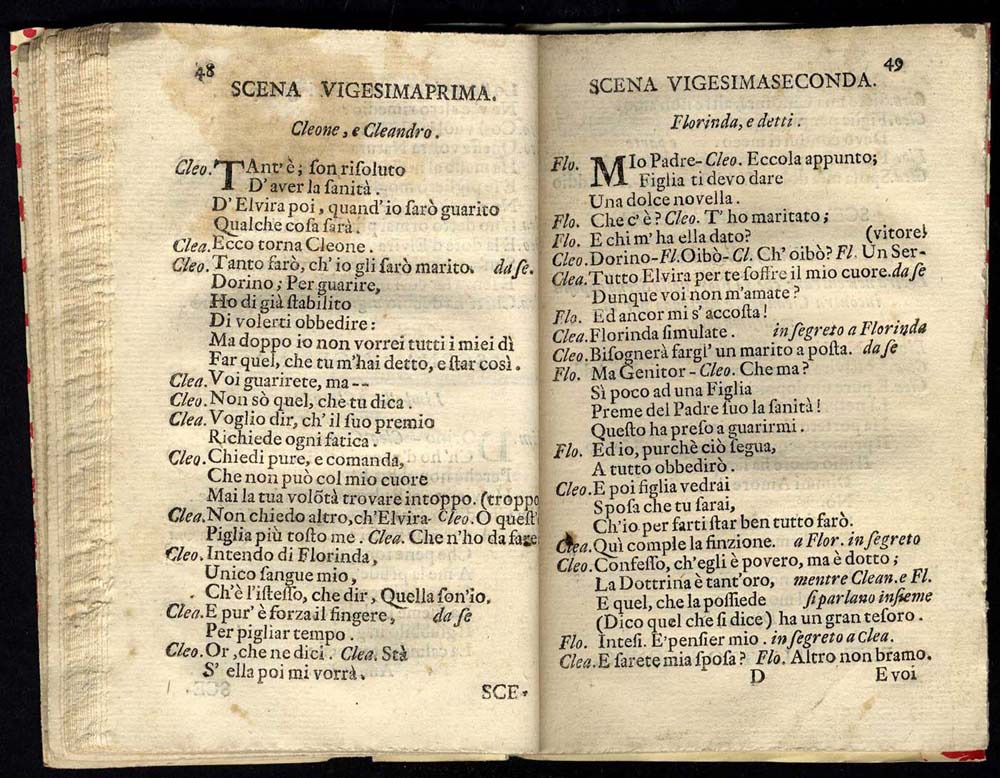 48
SCENA VIGESIMAPRIMA.
Cleone, e Cleandro.
Cleo. TAnt'è; ſon riſoluto
D'aver la ſanità.
D'Elvira poi, quand'io ſarò guarito
Qualche coſa ſarà.
Clea. Ecco torna Cleone.
Cleo. Tanto farò, ch'io gli ſarò marito. da ſe.
Dorino; Per guarire,
Ho di già ſtabilito
Di volerti obbedire:
Ma doppo io non vorrei tutti i miei dì
Far quel, che tu m'hai detto, e ſtar così.
Clea. Voi guarirete, ma --
Cleo. Non sò quel, che tu dica.
Clea. Voglio dir, ch'il ſuo premio
Richiede ogni fatica.
Cleo. Chiedi pure, e comanda,
Che non può col mio cuore
Mai la tua volõtà trovare intoppo. (troppo
Clea. Non chiedo altro, ch'Elvira- Cleo. O queſt'
Piglia più toſto me. Clea. Che n'ho da fare
Cleo. Intendo di Florinda,
Unico ſangue mio,
Ch'è l'iſteſſo, che dir, Quella ſon'io.
Clea. E pur'è forza il fingere, da ſe
Per pigliar tempo.
Cleo. Or, che ne dici. Clea. Stà
S'ella poi mi vorrà.
SCE-
49
SCENA VIGESIMASECONDA.
Florinda, e detti.
Flo. MIo Padre- Cleo. Eccola appunto;
Figlia ti devo dare
Una dolce novella.
Flo. Che c'è? Cleo. T'ho maritato;
Flo. E chi m'ha ella dato? (vitore!
Cleo. Dorino- Fl. Oibò- Cl. Ch'oibò? Fl. Un Ser-
Clea. Tutto Elvira per te ſoffre il mio cuore. da ſe
Dunque voi non m'amate?
Flo. Ed ancor mi s'accoſta!
Clea. Florinda ſimulate. in ſegreto a Florinda
Cleo. Biſognerà fargl'un marito a poſta. da ſe
Flo. Ma Genitor - Cleo. Che ma?
Sì poco ad una Figlia
Preme del Padre ſuo la ſanità!
Queſto ha preſo a guarirmi.
Flo. Ed io, purchè ciò ſegua,
A tutto obbedirò.
Cleo. E poi figlia vedrai
Spoſa che tu ſarai,
Ch'io per farti ſtar ben tutto farò.
Clea. Quì comple la finzione. a Flor. in ſegreto
Cleo. Confeſſo, ch'egli è povero, ma è dotto;
La Dottrina è tant'oro, mentre Clean. e Fl.
E quel, che la poſſiede ſi parlano inſieme
(Dico quel che ſi dice) ha un gran teſoro.
Flo. Inteſi. E'penſier mio. in ſegreto a Clea.
Clea. E ſarete mia ſpoſa? Flo. Altro non bramo.
D E voi